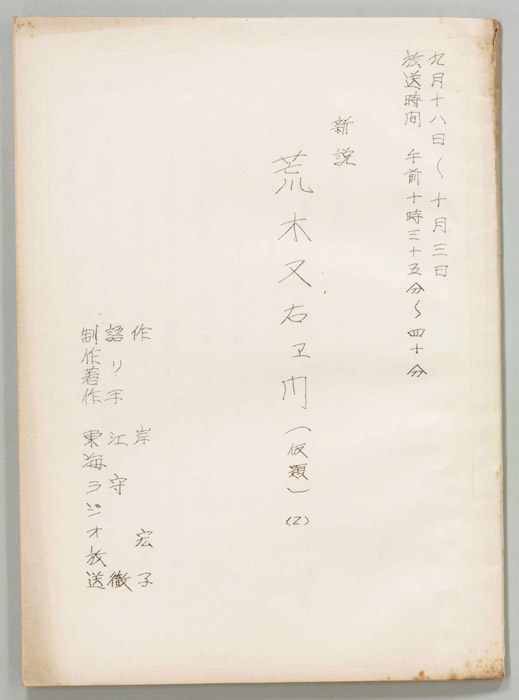 九月十八日〜十月三日
放送時間 午前十時三十五分〜四十分
新説
荒木又右ヱ門(仮題)(2)
作 岸宏子
語り手 江守徹
制作著作 東海ラジオ放送